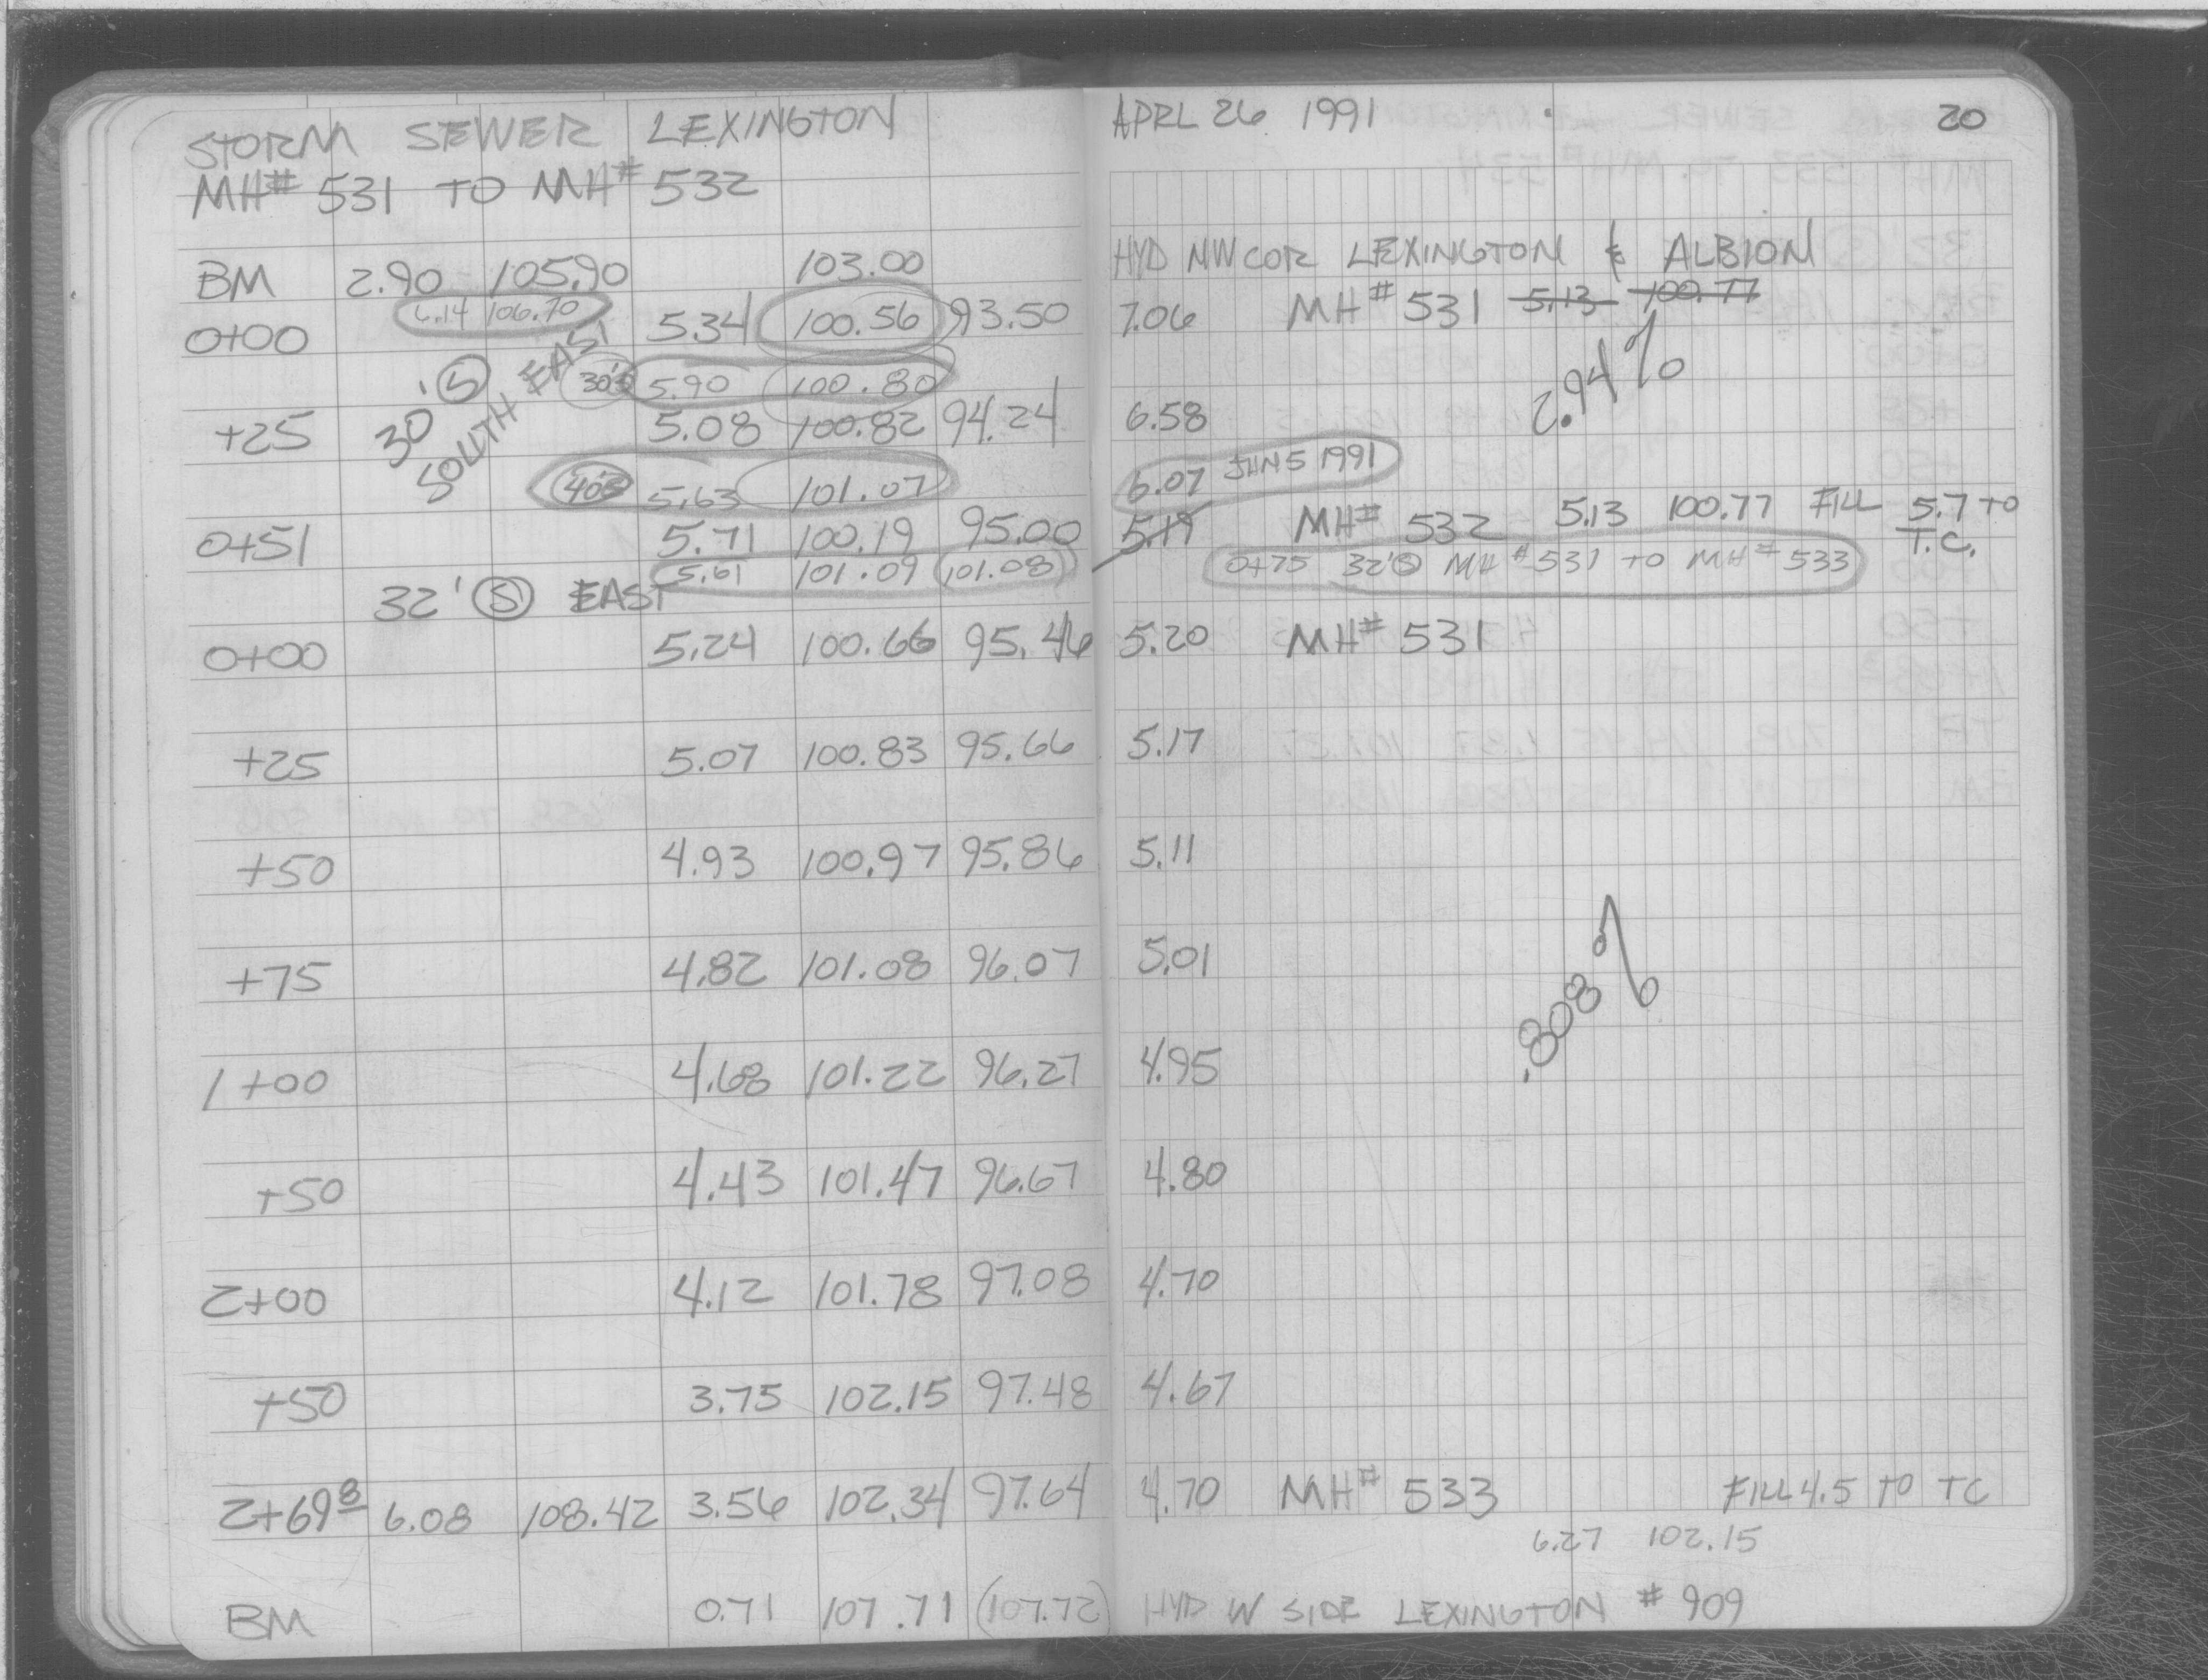 STORM SEWER LEXINGTON APRL 26 1991 20
MH# 531 TO MH# 532
BM 2.90 105.90 103.00 HYD NW COR LEXINGTON & ALBION
6.14 106.70
0+00 5.34 100.56 93.50 7.06 MH# 531 5.13 100.77
30' S SOUTH EAST
30'S 5.90 100.80
2.94%
+25 5.08 100.82 94.24 6.58
40'S 5.63 101.07 6.07 JUN 5 1991
0+51 5.71 100.19 95.00 5.19 MH# 532 5.13 100.77 FILL 5.7 TO T.C.
5.61 101.09 101.08 0+75 32'S MH# 531 TO MH# 533
32' S EAST
0+00 5.24 100.66 95.46 5.20 MH# 531
+25 5.07 100.83 95.66 5.17
+50 4.93 100.97 95.86 5.11
+75 4.82 101.08 96.07 5.01
.808%
1+00 4.68 101.22 96.27 4.95
+50 4.43 101.47 96.67 4.80
2+00 4.12 101.78 97.08 4.70
+50 3.75 102.15 97.48 4.67
2+69 8 6.08 108.42 3.56 102.34 97.64 4.70 MH# 533 FILL 4.5 TO TC
6.27 102.15
BM 0.71 107.71 (107.72) HYD W SIDE LEXINGTON # 909